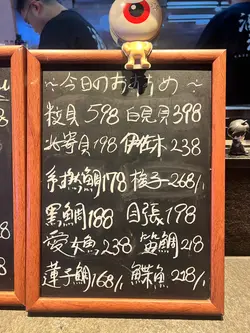 ～今日のおすすめ～
牧貝598 白見貝398
北寄貝198 伊佐木238
糸撚鯛178 梭子268/1
黒鯛188 目張198
愛女魚238 笛鯛218
蓮子鯛168/1 鰈魚218/1